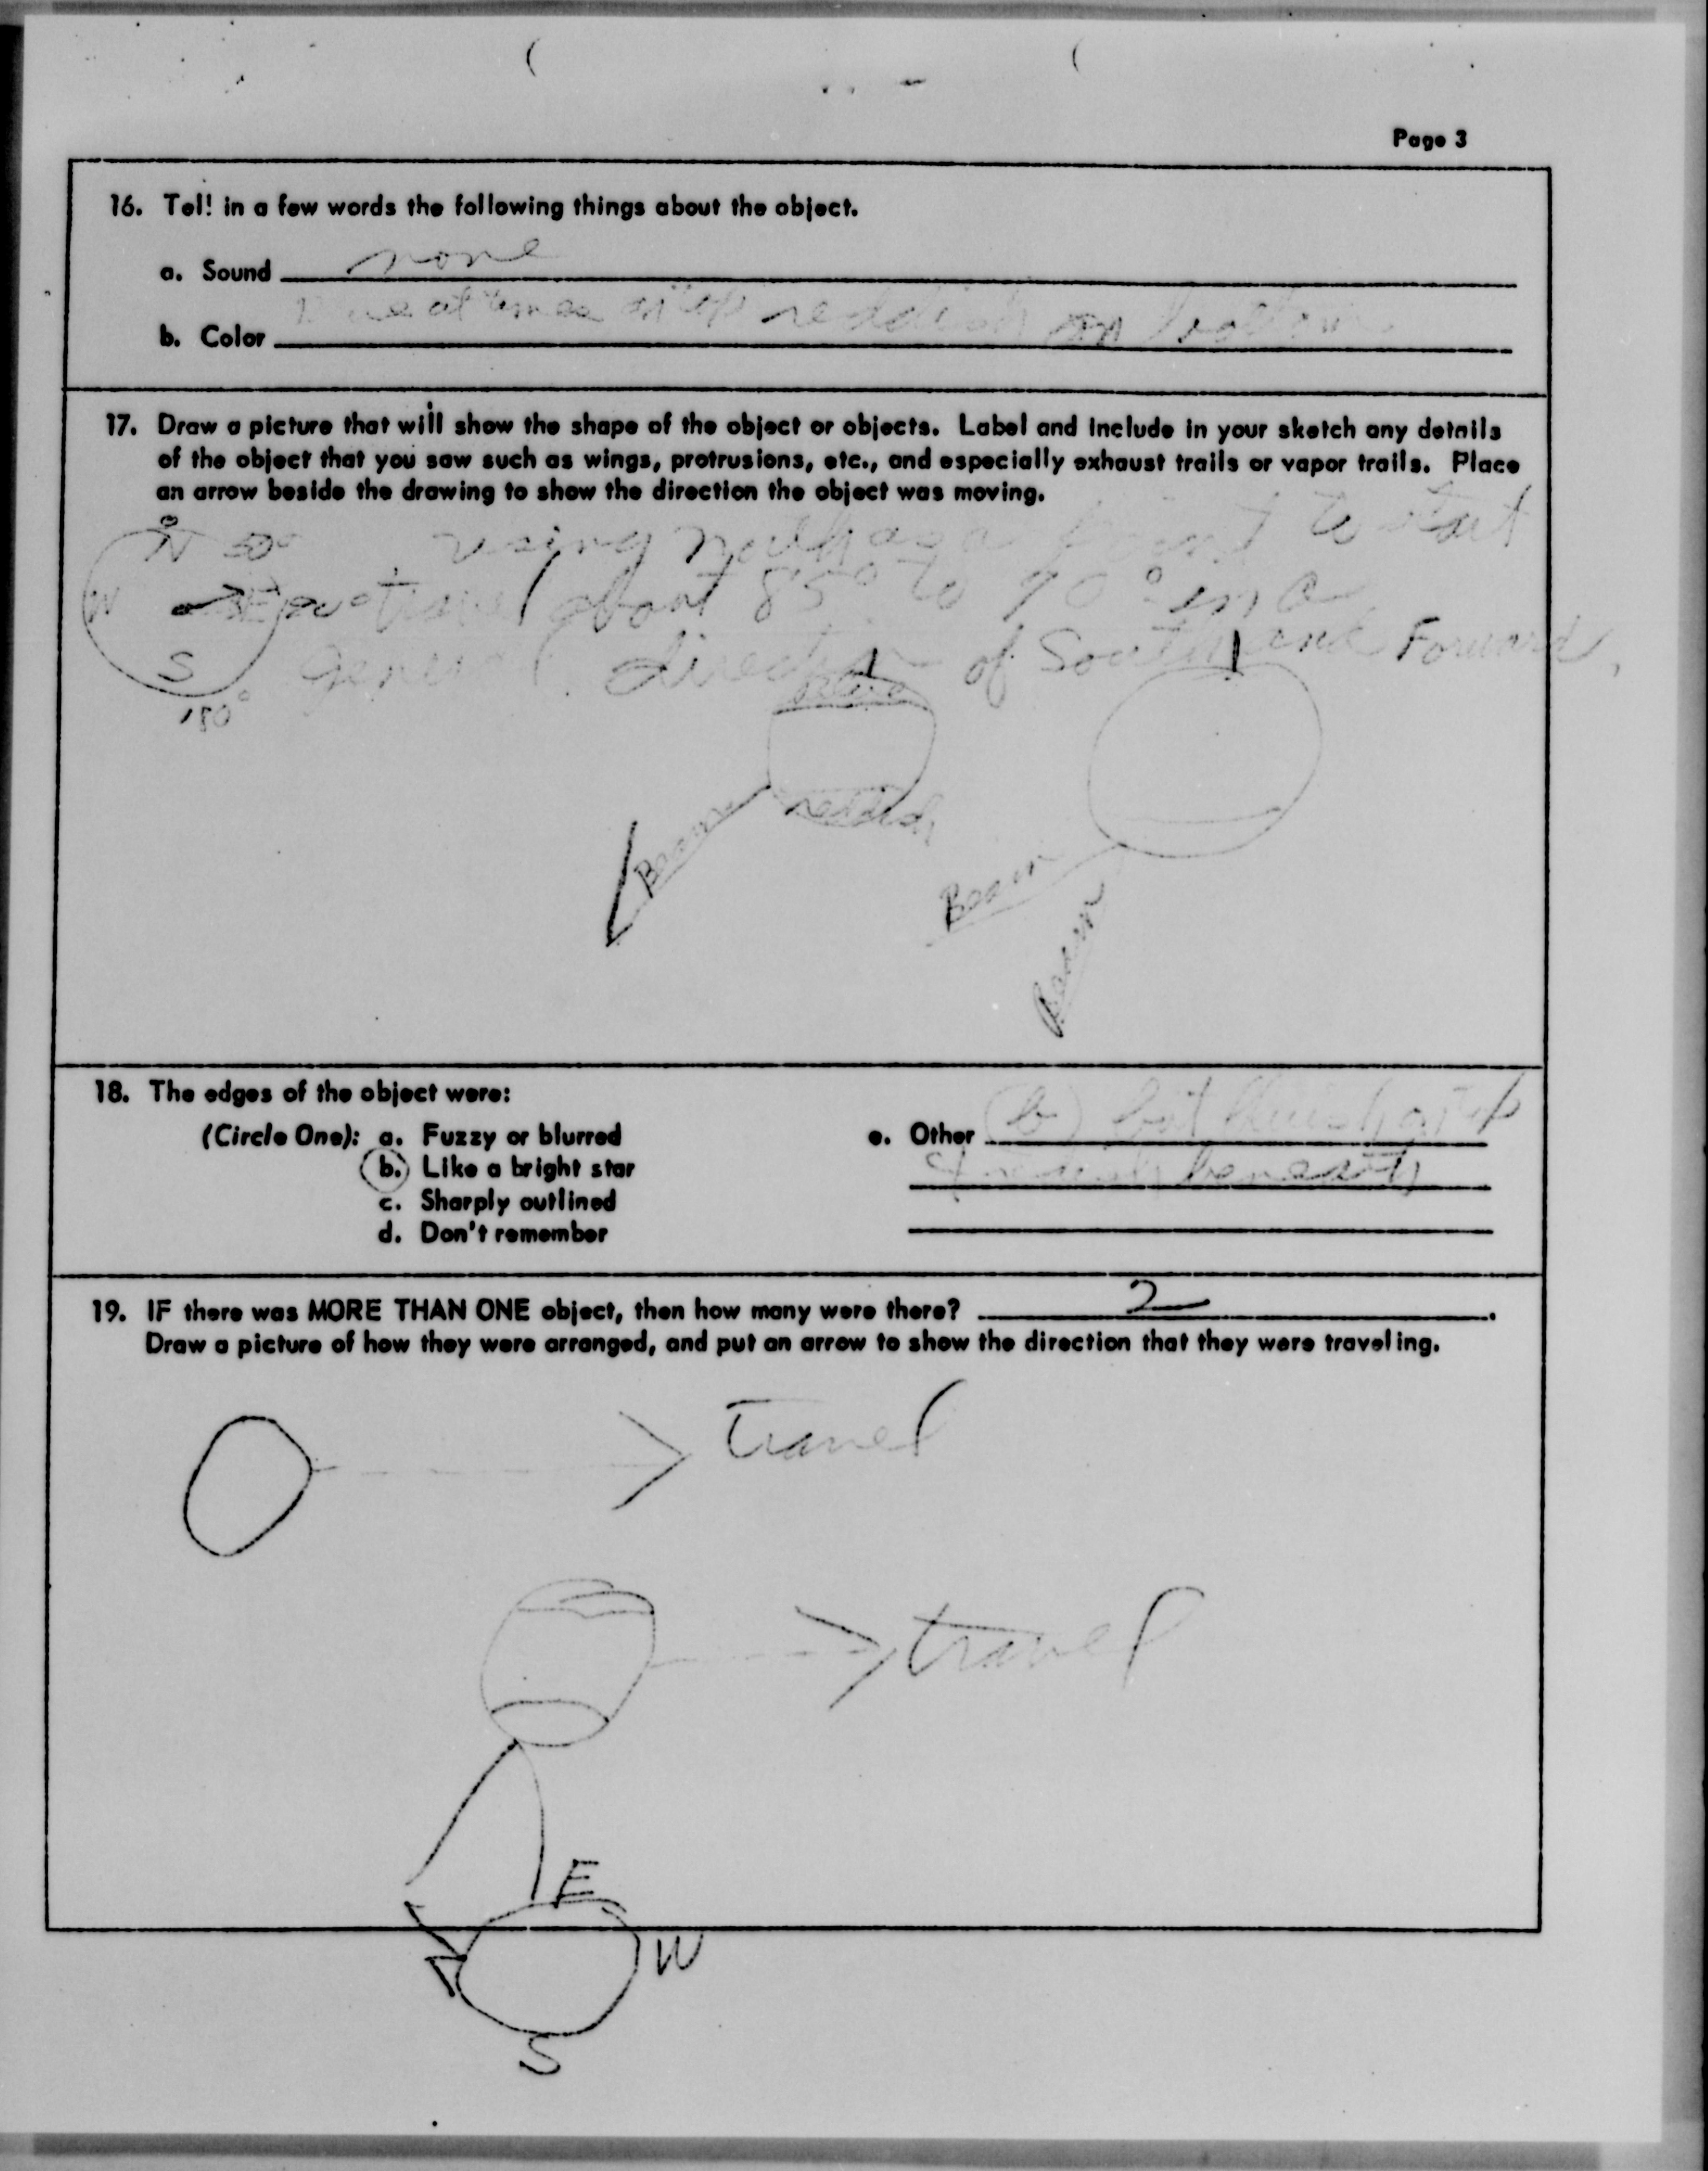 Page 3
16. Tell in a few words the following things about the object.
a. Sound none
b. Color at times on top reddish on bottom
17. Draw a picture that will show the shape of the object or objects. Label and include in your sketch any details
of the object that you saw such as wings, protrusions, etc., and especially exhaust trails or vapor trails. Place
an arrow beside the drawing to show the direction the object was moving.
N using north as a point to start
W E travel about 85° to 90° in a
S General direction of South and Forward
180°
Beam
Beam
Beam
18. The edges of the object were:
(Circle One): a. Fuzzy or blurred
b. Like a bright star
c. Sharply outlined
d. Don't remember
e. Other (b) but bluish on top
& reddish beneath
19. IF there was MORE THAN ONE object, then how many were there? 2.
Draw a picture of how they were arranged, and put an arrow to show the direction that they were traveling.
travel
travel
E
W
S